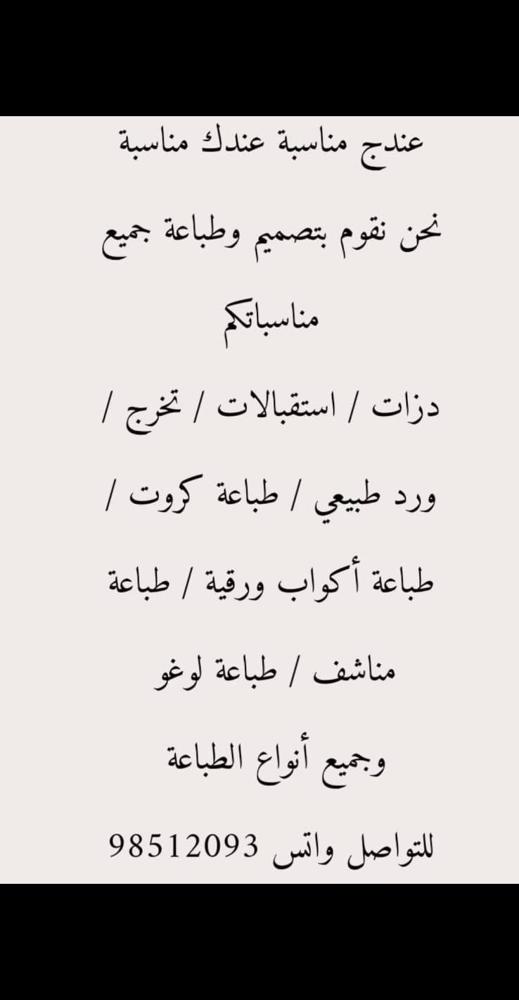 عندج مناسبة عندك مناسبة
نحن نقوم بتصميم وطباعة جميع
مناسباتكم
دزات / استقبالات / تخرج /
ورد طبيعي / طباعة كروت /
طباعة أكواب ورقية / طباعة
مناشف / طباعة لوغو
وجميع أنواع الطباعة
للتواصل واتس 98512093